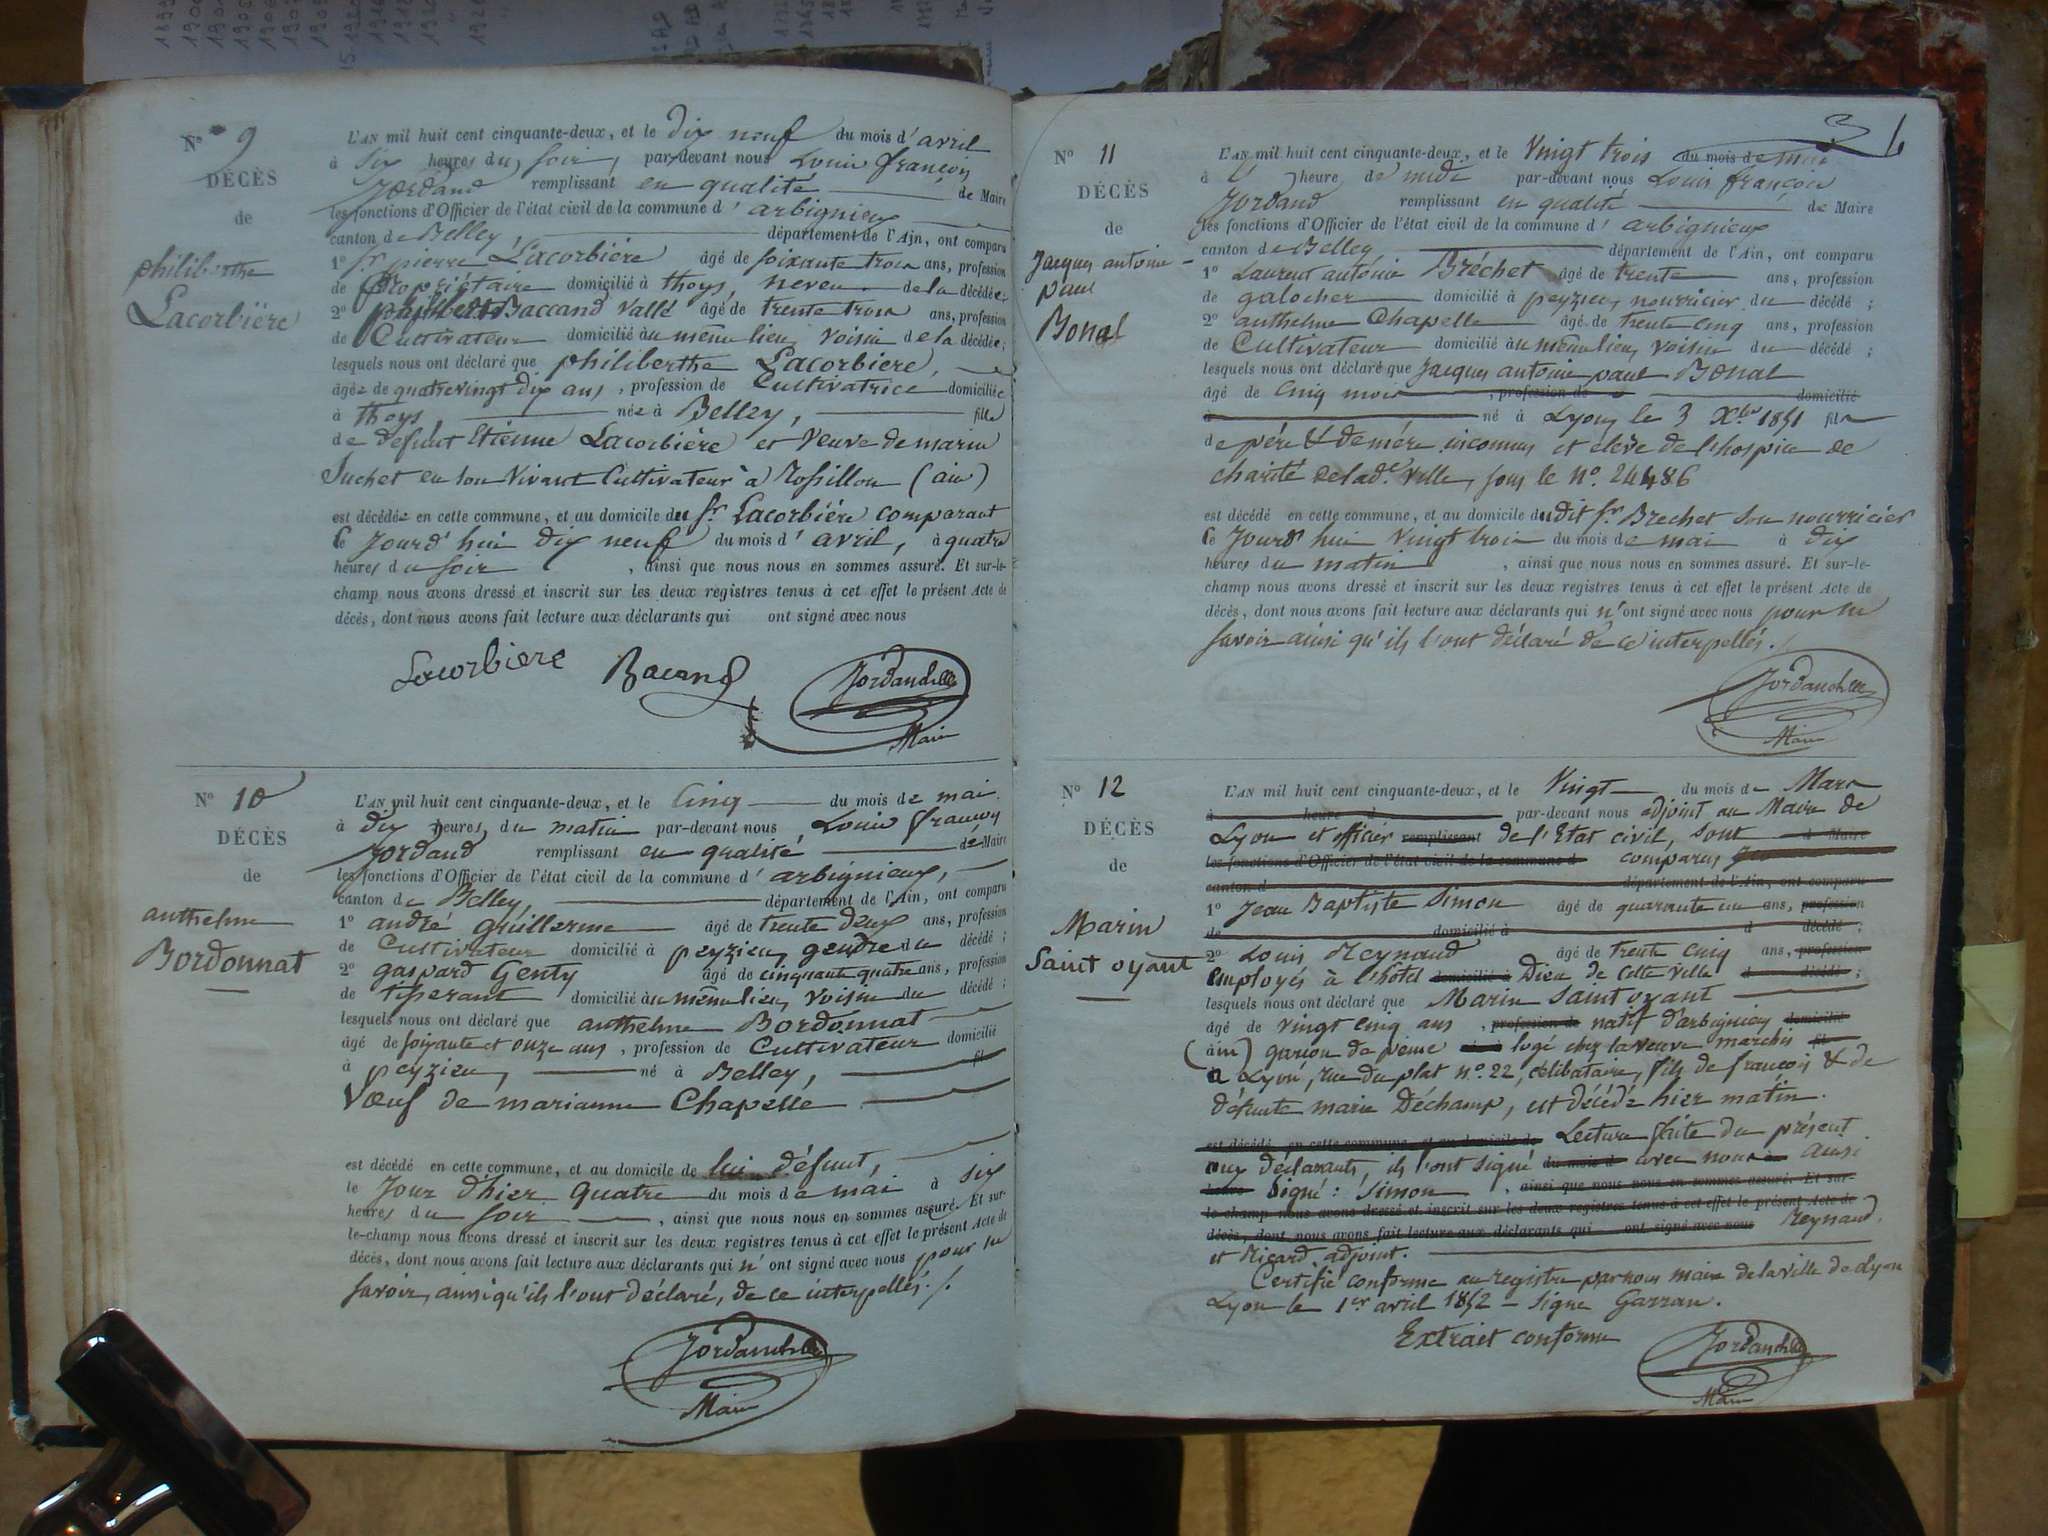 N° 9
DÉCÈS
de
philiberthe
Lacorbière
L'AN mil huit cent cinquante-deux, et le dix neuf du mois d'avril
à six heures du soir, par-devant nous Louis françois
Jordand remplissant en qualité de Maire
les fonctions d'Officier de l'état civil de la commune d'arbignieux
canton de Belley, département de l'Ain, ont comparu
1° Sr pierre Lacorbière âgé de soixante trois ans, profession
de propriétaire domicilié à thoys, neveu de la décédée;
2° Baccand Vallé âgé de trente trois ans, profession
de Cultivateur domicilié au même lieu, voisin de la décédée;
lesquels nous ont déclaré que philiberthe Lacorbière,
âgée de quatrevingt dix ans, profession de Cultivatrice domiciliée
à thoys, née à Belley, fille
de defunt Etienne Lacorbière et Veuve de marin
Suchet en son Vivant Cultivateur à Rossillon (ain)
est décédée en cette commune, et au domicile du sr Lacorbière comparant
le Jourd'hui dix neuf du mois d'avril, à quatre
heures du soir, ainsi que nous nous en sommes assuré. Et sur-le-
champ nous avons dressé et inscrit sur les deux registres tenus à cet effet le présent Acte de
décès, dont nous avons fait lecture aux déclarants qui ont signé avec nous
Lacorbiere Bacand Jordand
Maire
N° 10
DÉCÈS
de
anthelme
Bordonnat
L'AN mil huit cent cinquante-deux, et le Cinq du mois de mai
à dix heures du matin par-devant nous Louis françois
Jordand remplissant en qualité de Maire
les fonctions d'Officier de l'état civil de la commune d'arbignieux,
canton de Belley, département de l'Ain, ont comparu
1° andré grillerme âgé de trente deux ans, profession
de Cultivateur domicilié à peyzieu, gendre du décédé;
2° gaspard Genty âgé de cinquante quatre ans, profession
de tisserant domicilié au même lieu, voisin du décédé;
lesquels nous ont déclaré que anthelme Bordonnat
âgé de soixante et onze ans, profession de Cultivateur domicilié
à peyzieu, né à Belley, fil
Vœuf de marianne Chapelle
est décédé en cette commune, et au domicile de lui défunt,
le Jour d'hier quatre du mois de mai à six
heures du soir, ainsi que nous nous en sommes assuré. Et sur-
le-champ nous avons dressé et inscrit sur les deux registres tenus à cet effet le présent Acte de
décès, dont nous avons fait lecture aux déclarants qui n'ont signé avec nous pour ne
savoir, ainsi qu'ils l'ont déclaré, de ce interpellés./.
Jordand
Maire
N° 11
DÉCÈS
de
Jacques antoine
paul
Bonal
L'AN mil huit cent cinquante-deux, et le Vingt trois du mois de mai
à heure de midi par-devant nous Louis françois
Jordand remplissant en qualité de Maire
les fonctions d'Officier de l'état civil de la commune d'arbignieux
canton de Belley département de l'Ain, ont comparu
1° Laurent antoine Bréchet âgé de trente ans, profession
de galocher domicilié à peyzieu, nourricier du décédé;
2° anthelme Chapelle âgé de trente cinq ans, profession
de Cultivateur domicilié au même lieu, voisin du décédé;
lesquels nous ont déclaré que Jacques antoine paul Bonal
âgé de cinq mois, profession de domicilié
à né à Lyon, le 3 Xbre 1851 fils
de père & de mère inconnus et elève de l'hospice de
charité de lade Ville, sous le N° 24486
est décédé en cette commune, et au domicile du dit sr Brechet son nourricier
le Jourd'hui vingt trois du mois de mai à dix
heures du matin, ainsi que nous nous en sommes assuré. Et sur-le-
champ nous avons dressé et inscrit sur les deux registres tenus à cet effet le présent Acte de
décès, dont nous avons fait lecture aux déclarants qui n'ont signé avec nous pour ne
savoir ainsi qu'ils l'ont déclaré de ce interpellés./.
Jordand
Maire
N° 12
DÉCÈS
de
Marin
Saint oyant
L'AN mil huit cent cinquante-deux, et le Vingt du mois de Mars
à heure d par-devant nous adjoint au Maire de
Lyon et officier remplissant de l'Etat civil, sont d Maire
les fonctions d'Officier de l'état civil de la commune d comparus
canton d département de l'Ain, ont comparu
1° Jean Baptiste Simon âgé de quarante un ans, profession
de domicilié à d décédé;
2° Louis Reynaud âgé de trente cinq ans, profession
employés à l'hôtel domicilié à Dieu de cette ville d décédé;
lesquels nous ont déclaré que Marin Saint oyant
âgé de vingt cinq ans, profession de natif d'arbignieu domicilié
(ain) garçon de peine logé chez la veuve marchis fil
à Lyon, rue du plat n° 22, célibataire, fils de françois & de
défunte marie Déchamp, est décédé hier matin.
est décédé en cette commune, et au domicile de Lecture faite du présent
aux déclarants, ils l'ont signé du mois d avec nous Ainsi
heures Signé: Simon, ainsi que nous nous en sommes assuré. Et sur-
le-champ nous avons dressé et inscrit sur les deux registres tenus à cet effet le présent Acte de
décès, dont nous avons fait lecture aux déclarants qui ont signé avec nous Reynaud,
et Ricard, adjoint.
Certifié conforme au registre par nous maire de la ville de Lyon
Lyon le 1er avril 1852 - Signé
Extrait conforme
Jordand
Maire